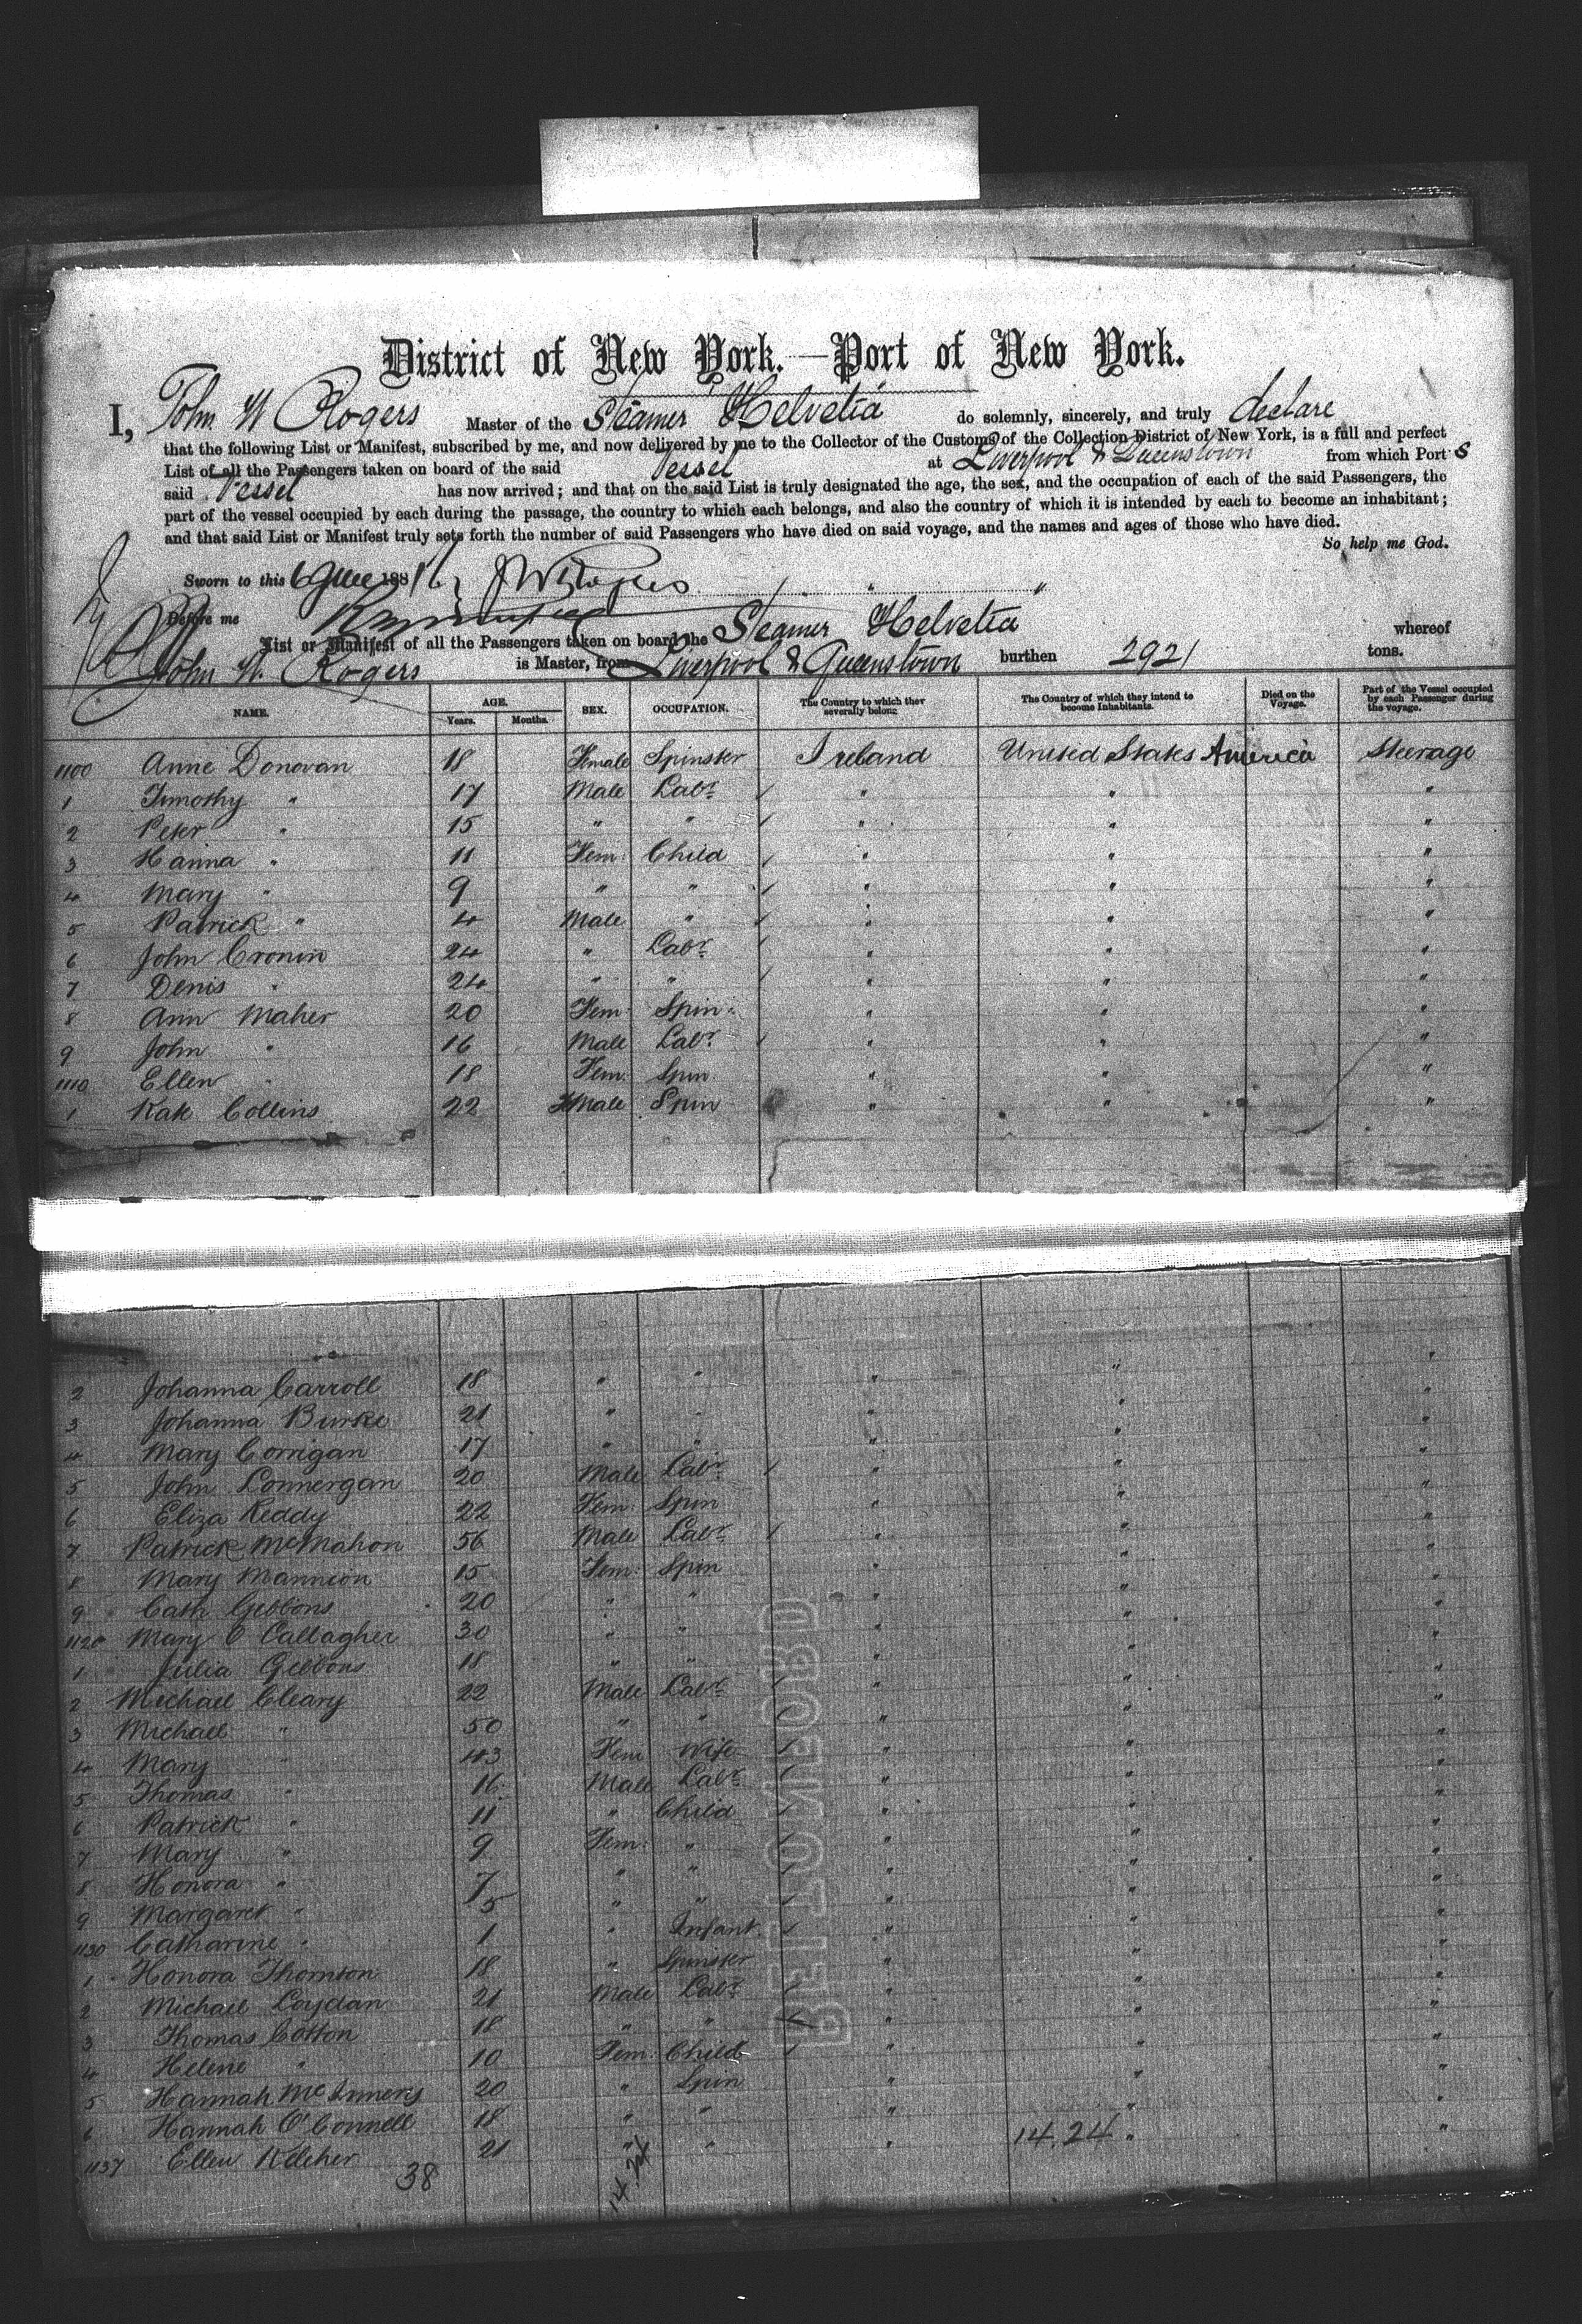 District of New York.—Port of New York.
I, John W Rogers Master of the Steamer Helvetia do solemnly, sincerely, and truly declare
that the following List or Manifest, subscribed by me, and now delivered by me to the Collector of the Customs of the Collection District of New York, is a full and perfect
List of all the Passengers taken on board of the said Vessel at Liverpool & Queenstown from which Port s
said Vessel has now arrived; and that on the said List is truly designated the age, the sex, and the occupation of each of the said Passengers, the
part of the vessel occupied by each during the passage, the country to which each belongs, and also the country of which it is intended by each to become an inhabitant;
and that said List or Manifest truly sets forth the number of said Passengers who have died on said voyage, and the names and ages of those who have died.
So help me God.
Sworn to this 6 188 JW Rogers
Before me
List or Manifest of all the Passengers taken on board the Steamer Helvetia whereof
John W. Rogers is Master, from Liverpool & Queenstown burthen 2921 tons.
NAME. AGE. Years. Months. SEX. OCCUPATION. The Country to which they severally belong The Country of which they intend to become Inhabitants. Died on the Voyage. Part of the Vessel occupied by each Passenger during the voyage.
1100 Anne Donovan 18 Female Spinster Ireland United States America Steerage
1 Timothy " 17 Male Labr " " "
2 Peter " 15 " " " " "
3 Hanna " 11 Fem: Child " " "
4 Mary " 9 " " " " "
5 Patrick " 4 Male " " " "
6 John Cronin 24 " Labr " " "
7 Denis " 24 " " " " "
8 Ann Maher 20 Fem: Spin: " " "
9 John " 16 Male Labr " " "
1110 Ellen " 18 Fem: Spin. " " "
1 Kate Collins 22 FMale Spin " " "
2 Johanna Carroll 18 " " " " "
3 Johanna Burke 21 " " " " "
4 Mary Corrigan 17 " " " " "
5 John Lonnergan 20 Male Labr " " "
6 Eliza Reddy 22 Fem: Spin " " "
7 Patrick McMahon 56 Male Labr " " "
8 Mary Mannion 15 Fem: Spin " " "
9 Cath Gibbons 20 " " " " "
1120 Mary O Callagher 30 " " " " "
1 Julia Gibbons 18 " " " " "
2 Michael Cleary 22 Male Labr " " "
3 Michael " 50 " " " " "
4 Mary " 43 Fem Wife " " "
5 Thomas " 16 Male Labr " " "
6 Patrick " 11 " Child " " "
7 Mary " 9 Fem: " " " "
8 Honora " 7 " " " " "
9 Margaret " 5 " " " " "
1130 Catharine " 1 " Infant " " "
1 Honora Thornton 18 " Spinster " " "
2 Michael Loydan 21 Male Labr " " "
3 Thomas Cotton 18 " " " " "
4 Helene " 10 Fem: Child " " "
5 Hannah McInnery 20 " Spin " " "
6 Hannah O'Connell 18 " " " " "
1137 Ellen Keleher 21 " " " 14.24 " "
38 14.24